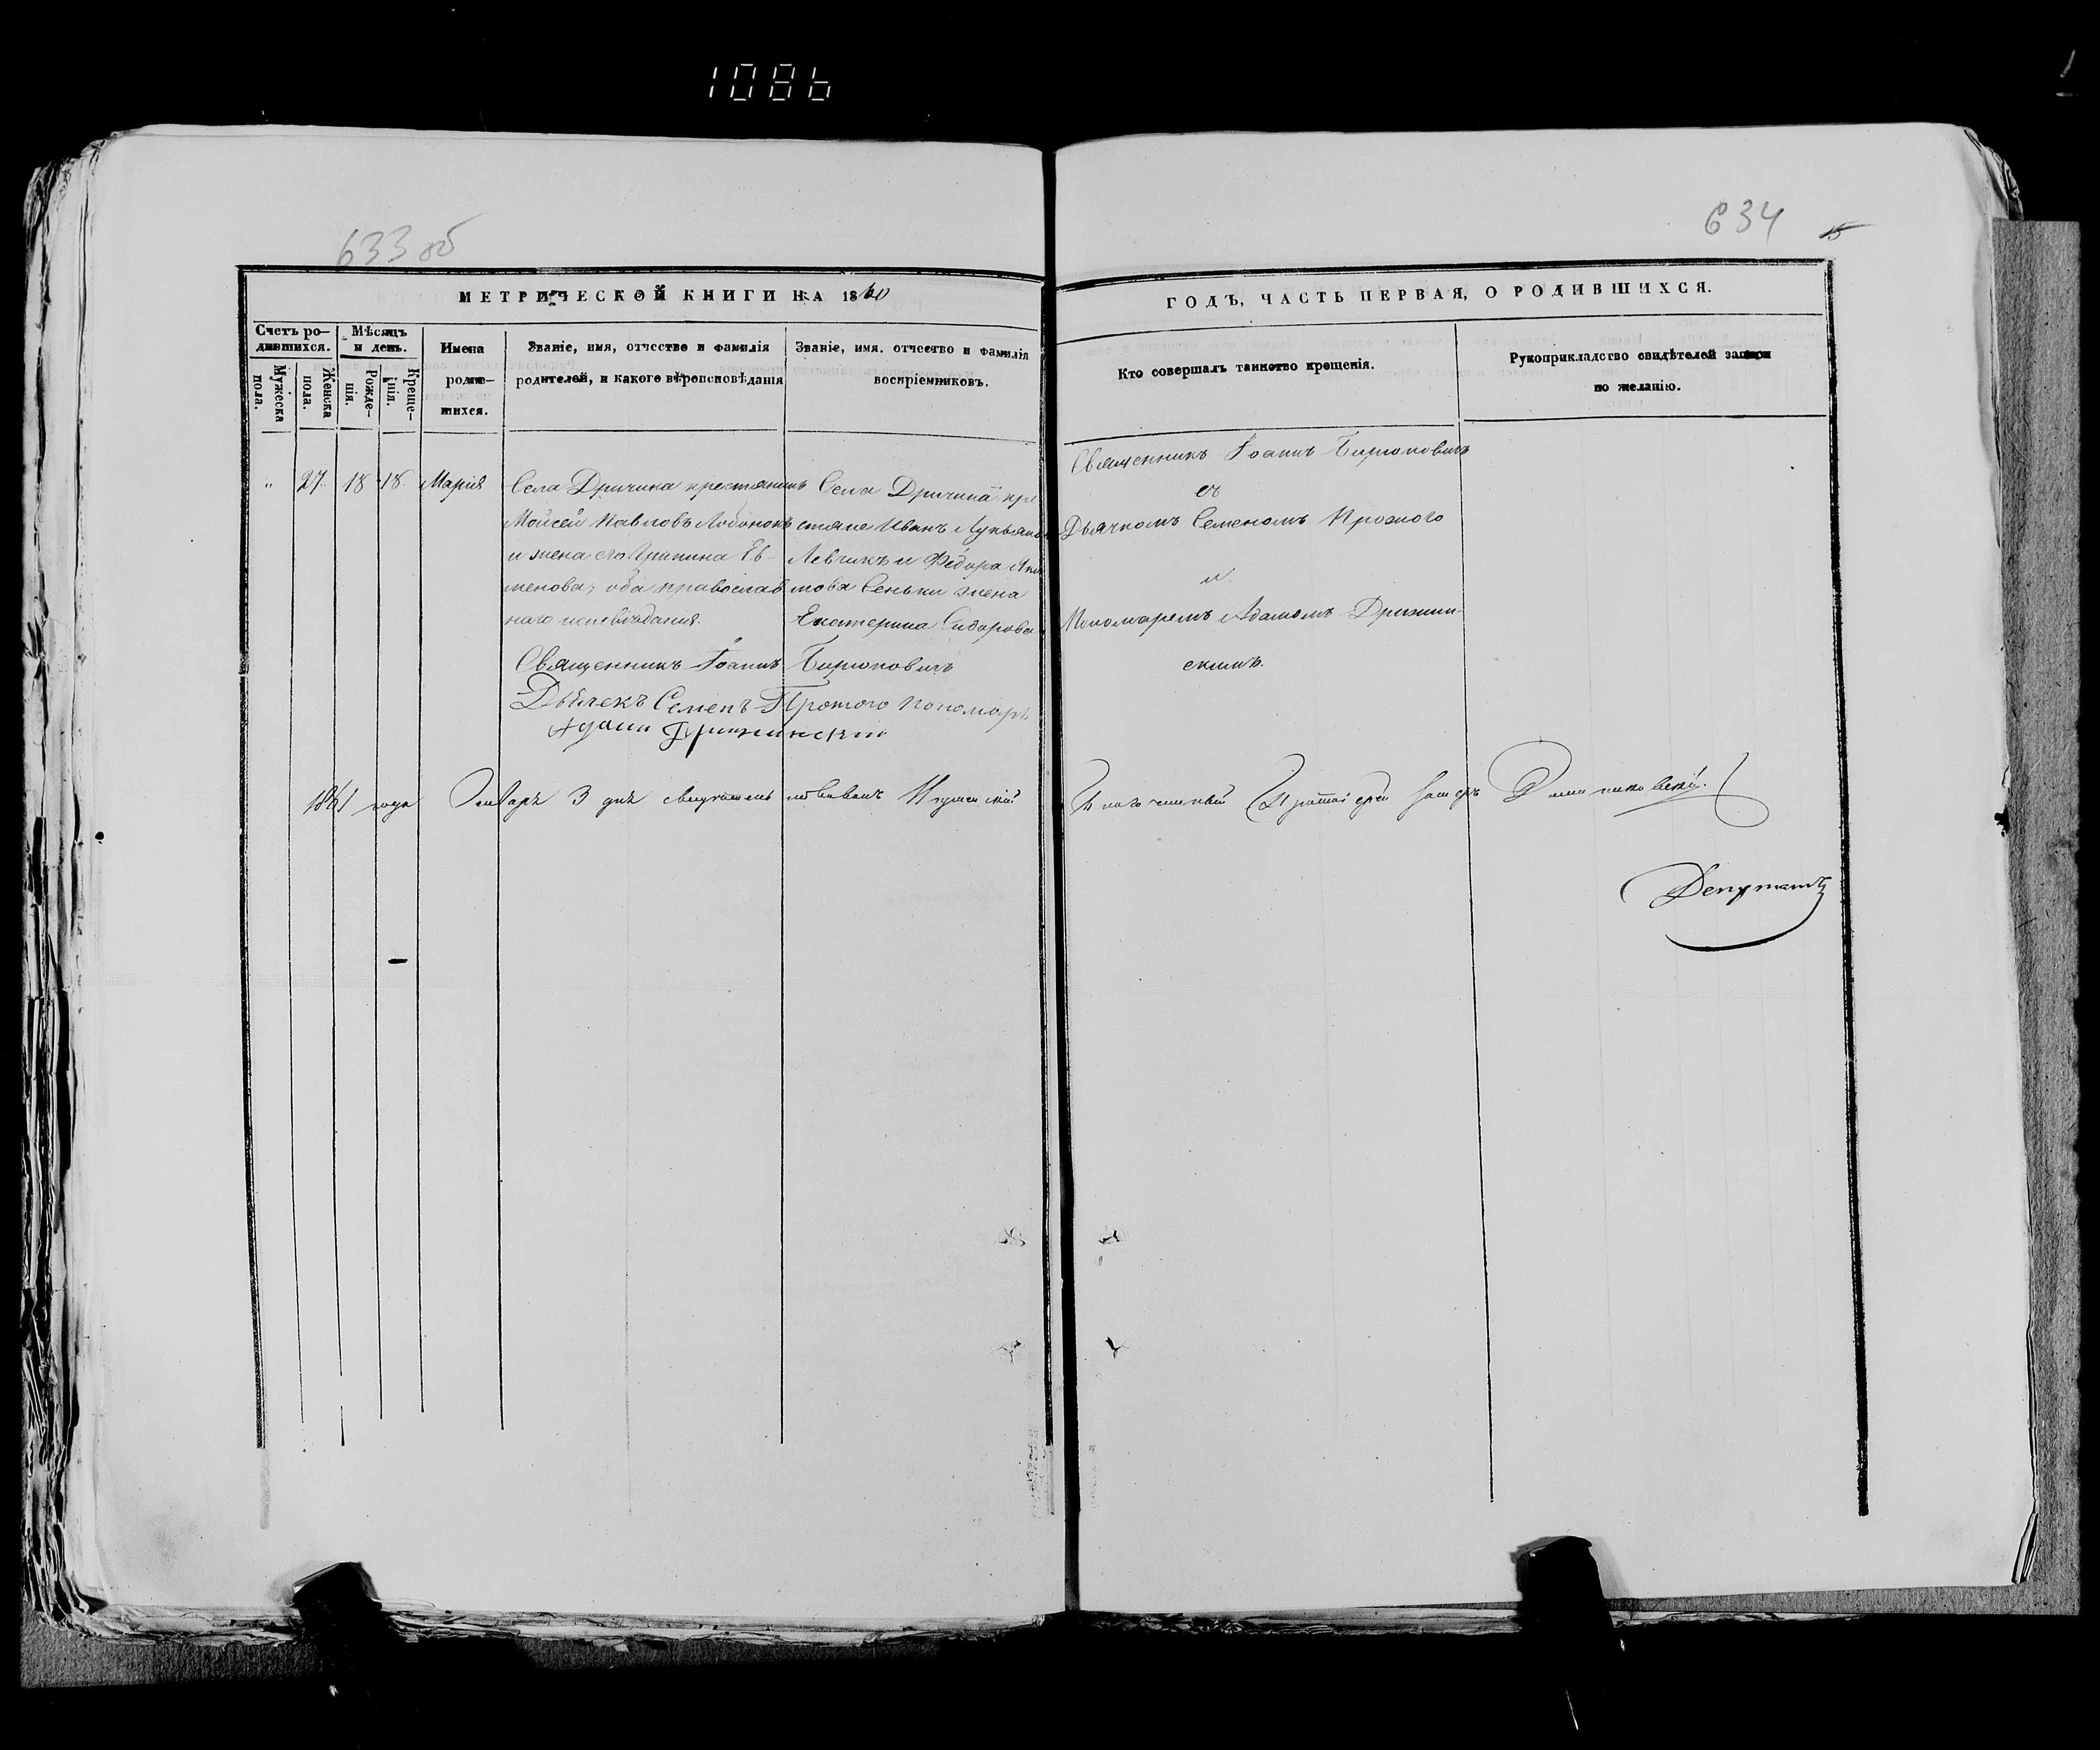 1086
633 об
634
15
МЕТРИЧЕСКОЙ КНИГИ НА 1860
ГОДЪ, ЧАСТЬ ПЕРВАЯ, О РОДИВШИХСЯ.
Счетъ ро-
дившихся.
Мужеска
пола.
Женска
пола.
Мѣсяцъ
и день.
Рожде-
нія.
Креще-
нія.
Имена
родив-
шихся.
Званіе, имя, отчество и фамилія
родителей, и какого вѣроисповѣданія
Званіе, имя. отчество и фамилія
воспріемниковъ.
Кто совершалъ таинство крещенія.
Рукоприкладство свидѣтелей записи
по желанію.
" 27. 18 18. Марія
Села Дричина крестьянинъ
Моисей Павловъ Лобонокъ
и жена его Грипина Ев-
менова, оба православ
наго исповѣданія.
Села Дричина кре
стяне Иванъ Лукьяновъ
Левчикъ и Федора Аки
мова Сеньки жена
Екатерина Сидорова
Священникъ Іоаннъ Бирюковичъ
съ
Дьячкомъ Семеномъ Прожого
и
Пономаремъ Адамомъ Држин-
скимъ.
Священникъ Іоаннъ Бирюковичъ
Дьячекъ Семенъ Прожого Пономарь
Адамъ
1861 года Января 3 дня свидетельствовалъ Игуменскій Благочинный Протоіерей
Депутатъ